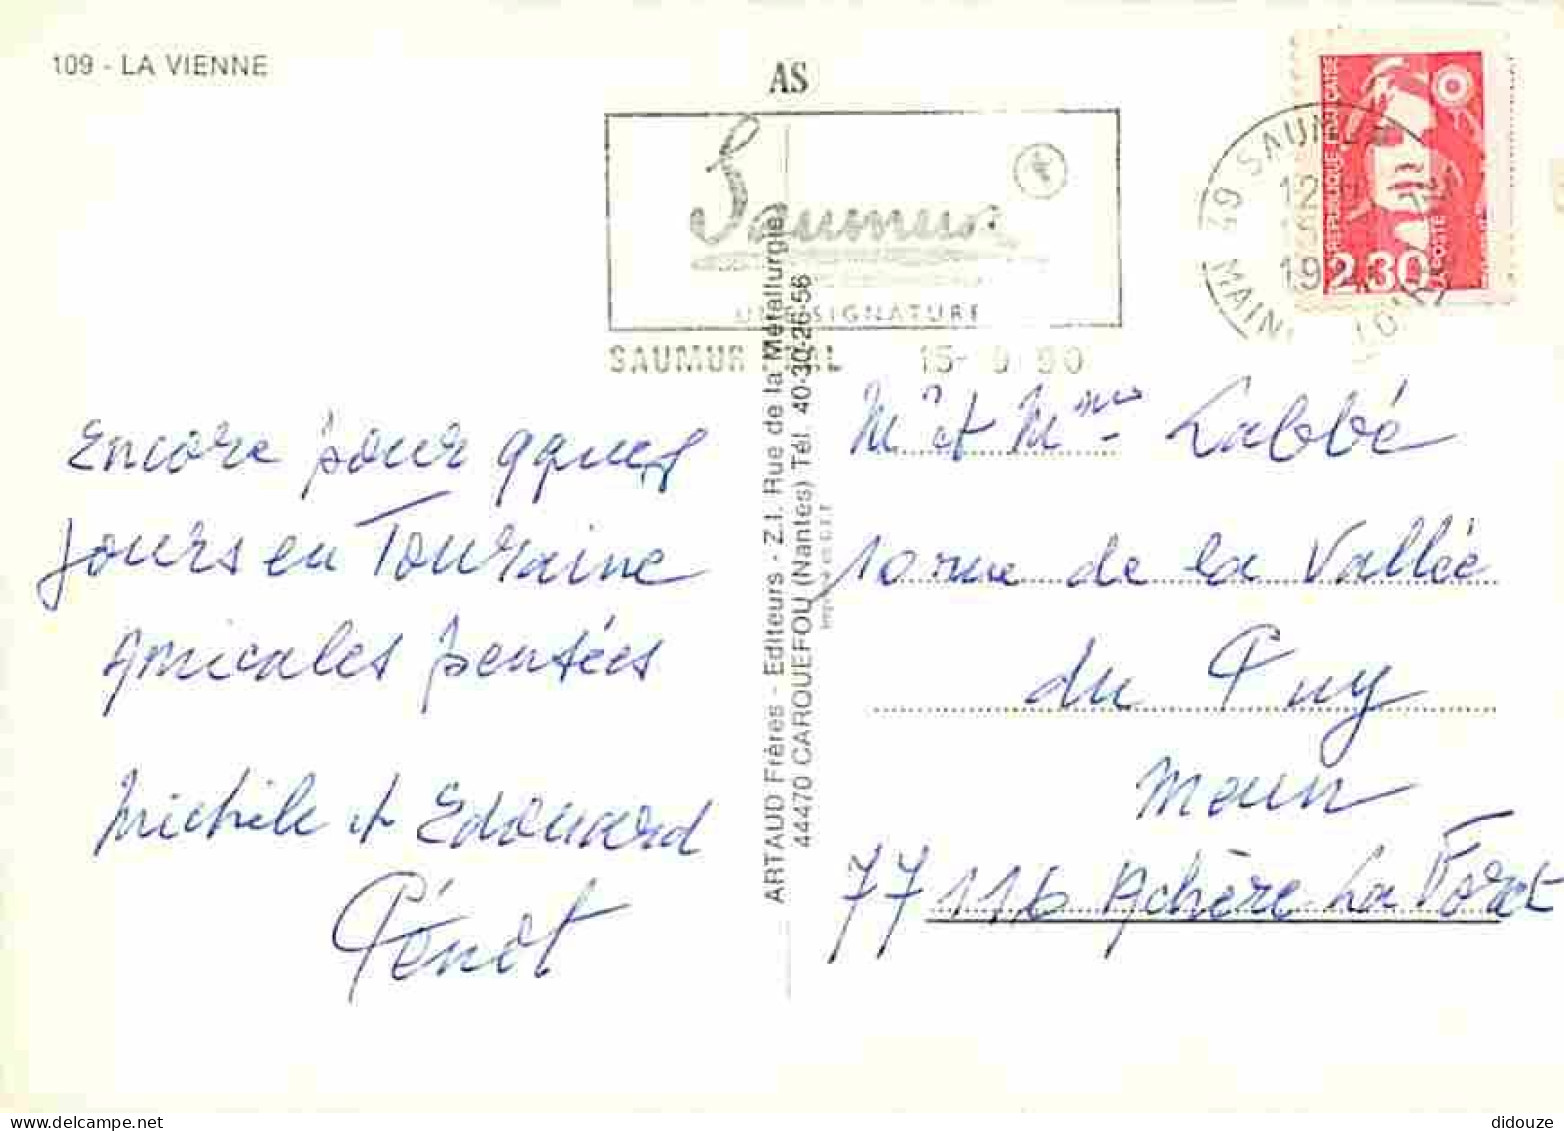 109 - LA VIENNE
AS
Saumur
UNE SIGNATURE
SAUMUR 15-9 90
49 SAUMUR
12
19
MAINE LOIRE
REPUBLIQUE FRANÇAISE
LA POSTE
2,30
Encore pour qques
jours en Touraine
Amicales pensées
Michèle et Edouard
Pénot
ARTAUD Frères - Editeurs - Z.I. Rue de la Métallurgie
44470 CARQUEFOU (Nantes) Tél. 40-30-26-56
Mr et Mme Labbé
10 rue de la Vallée
du Puy
Meun
77116 Achère La Foret
delcampe.net
didouze